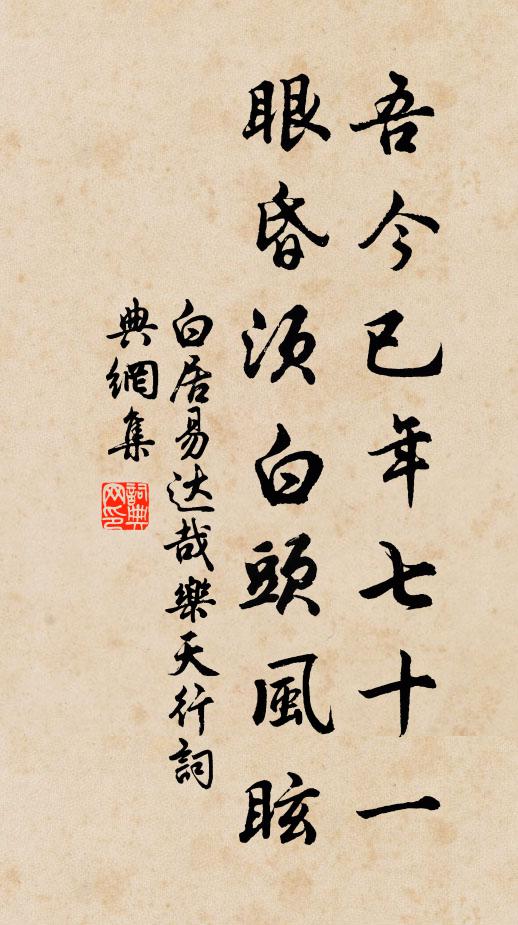 吾今已年七十一
眼昏須白頭風眩
白居易达哉樂天行詞
典網集
詞典
网印